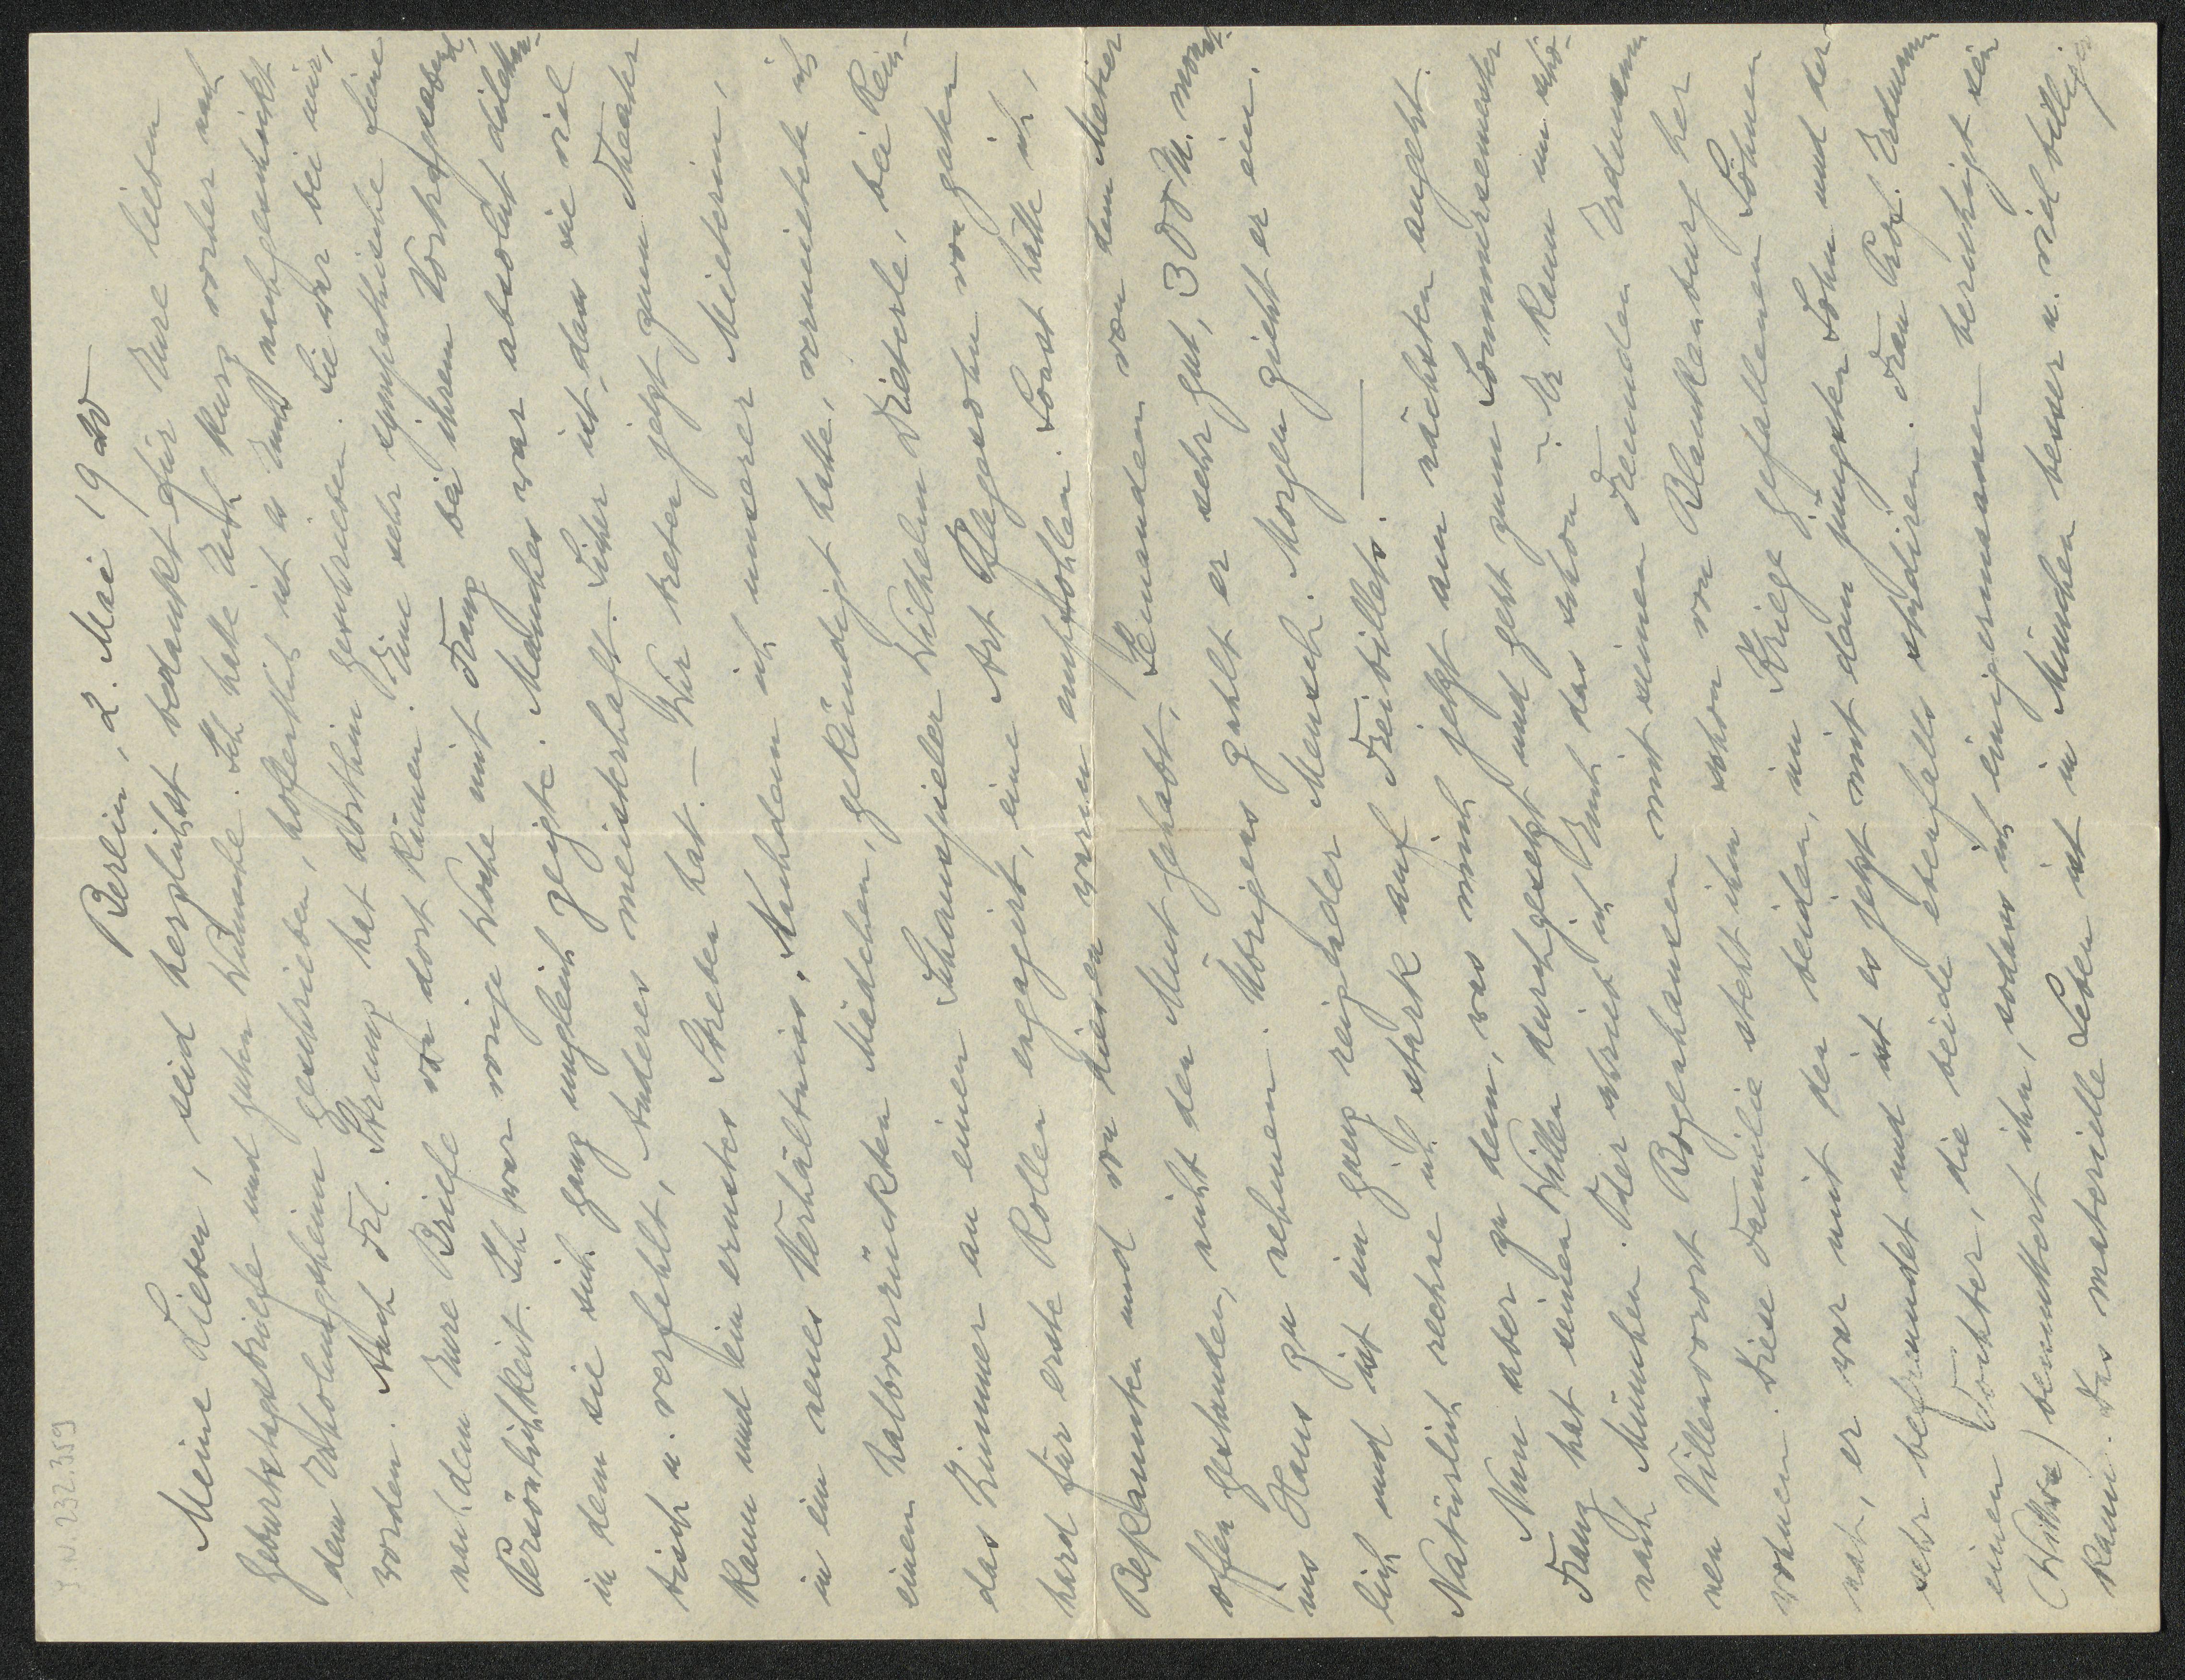 Berlin, 2. Mai 1920
Meine Lieben, seid herzlichst bedankt für Eure lieben
Geburtstagsbriefe und guten Wünsche. Ich hatte Euch kurz vorher nach
dem Erholungsheim geschrieben, hoffentlich ist es Euch nachgeschickt
worden. Auch Frl. Strung hat dorthin geschrieben. Sie war bei mir,
nachdem Eure Briefe von dort kamen. Eine sehr sympathische feine
Persönlichkeit. Ich war vorige Woche mit Franz bei ihrem Vortragsabend,
in dem sie sich ganz ungleich zeigte. Manches war absolut dilettan-
tisch u. verfehlt, Anderes meisterhaft. Sicher ist, dass sie viel
kann und ein ernstes Streben hat. – Wir treten jetzt zum Theater
in ein neues Verhältniss. Nachdem ich unserer Mieterin,
einem halbverrückten Mädchen, gekündigt hatte, vermietete ich
das Zimmer an einen Schauspieler Wilhelm Dieterle, bei Rein-
hard für erste Rollen engagirt, eine Art Pflegesohn von guten
Bekannten und von diesen warm empfohlen. Sonst hätte ich,
offen gestanden, nicht den Mut gehabt, Jemanden von dem Metier
ins Haus zu nehmen. Übrigens zahlt er sehr gut, 300 M. monat-
lich und ist ein ganz reizender Mensch. Morgen zieht er ein.
Natürlich rechne ich stark auf Freibillets.
Nun aber zu dem, was mich jetzt am nächsten angeht.
Franz hat seinen Willen durchgesetzt und geht zum Sommersemester
nach München. Oder schrieb ich Euch das schon? Er kann im schö-
nen Villenvorort Bogenhausen mit seinem Freunden Erdmann
wohnen. Diese Familie steht ihm schon von Blankenburg her
nah, er war mit den beiden, im Kriege gefallenen Söhnen
sehr befreundet und ist es jetzt mit dem jüngsten Sohn und der
einen Tochter, die beide ebenfalls studiren. Frau Prof. Erdmann
(Witwe) bemuttert ihn, sodass ich einigermassen beruhigt sein
kann. Das materielle Leben ist in München besser u. viel billiger
I.N. 232.359